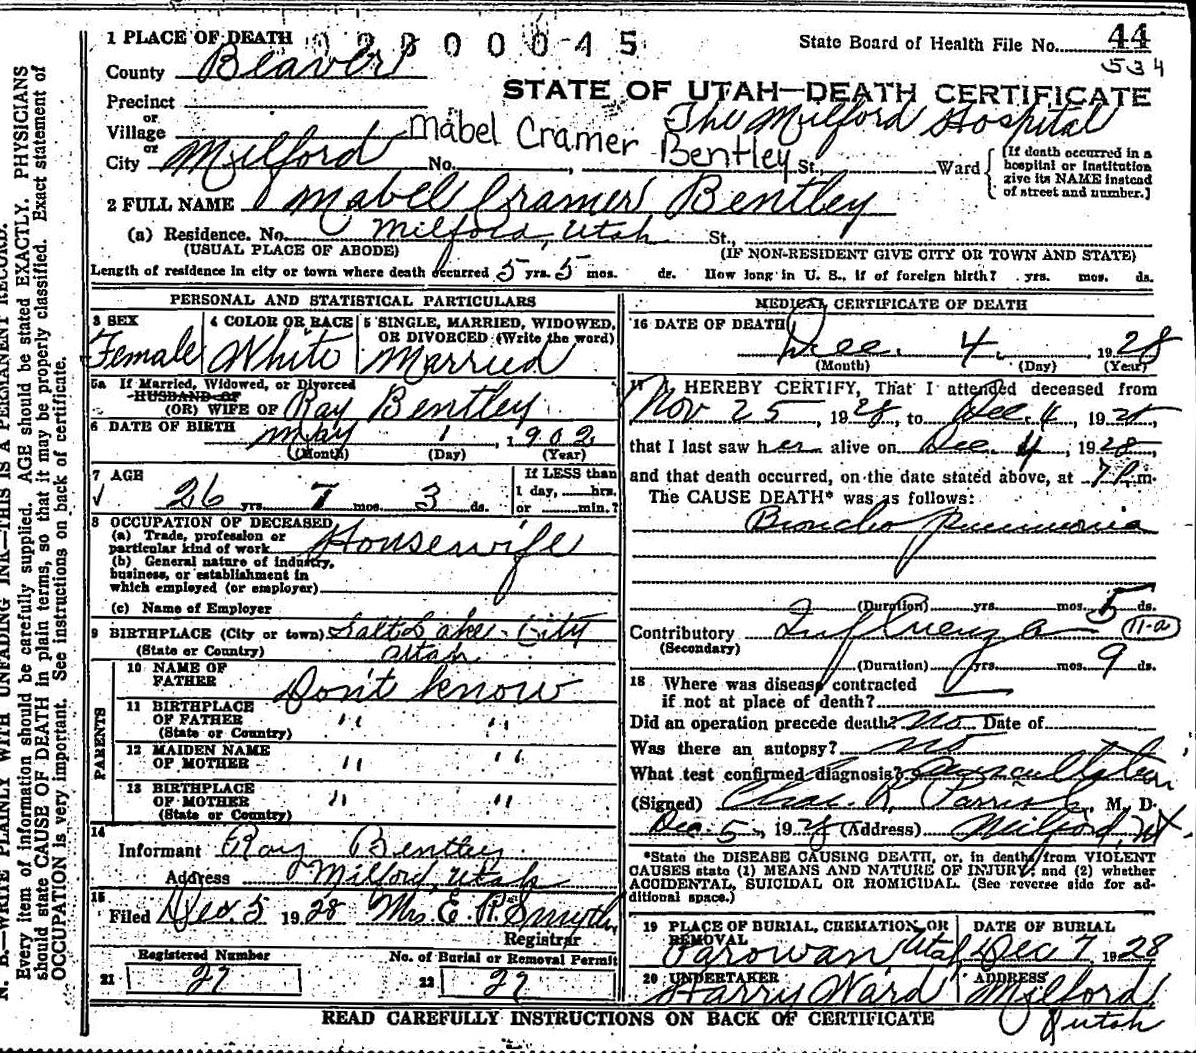 1 PLACE OF DEATH 02800045 State Board of Health File No. 44
534
County Beaver
STATE OF UTAH—DEATH CERTIFICATE
Precinct
or
Village
Mabel Cramer Bentley
The Milford Hospital
or
City Milford No. St., Ward
[If death occurred in a
hospital or institution
give its NAME instead
of street and number.]
2 FULL NAME Mabel Cramer Bentley
(a) Residence. No. Milford, Utah St.,
(USUAL PLACE OF ABODE) (IF NON-RESIDENT GIVE CITY OR TOWN AND STATE)
Length of residence in city or town where death occurred 5 yrs. 5 mos. ds. How long in U. S., if of foreign birth? yrs. mos. ds.
PERSONAL AND STATISTICAL PARTICULARS
3 SEX
Female
4 COLOR OR RACE
White
5 SINGLE, MARRIED, WIDOWED,
OR DIVORCED (Write the word)
Married
5a If Married, Widowed, or Divorced
HUSBAND OF
(OR) WIFE OF Ray Bentley
6 DATE OF BIRTH May 1, 1902
(Month) (Day) (Year)
7 AGE
26 yrs. 7 mos. 3 ds.
If LESS than
1 day, hrs.
or min.?
8 OCCUPATION OF DECEASED
(a) Trade, profession or
particular kind of work Housewife
(b) General nature of industry,
business, or establishment in
which employed (or employer)
(c) Name of Employer
9 BIRTHPLACE (City or town) Salt Lake City
(State or Country) Utah
PARENTS
10 NAME OF
FATHER Don't know
11 BIRTHPLACE
OF FATHER " "
(State or Country)
12 MAIDEN NAME
OF MOTHER " "
13 BIRTHPLACE
OF MOTHER " "
(State or Country)
14
Informant Ray Bentley
Address Milford, Utah
15
Filed Dec. 5 1928 Mrs. E. R. Smyth
Registrar
Registered Number
21 27
No. of Burial or Removal Permit
22 27
MEDICAL CERTIFICATE OF DEATH
16 DATE OF DEATH
Dec. 4, 1928
(Month) (Day) (Year)
17 I HEREBY CERTIFY, That I attended deceased from
Nov 25, 1928, to Dec. 4, 1928,
that I last saw her alive on Dec. 4, 1928,
and that death occurred, on the date stated above, at 7 P.m.
The CAUSE DEATH* was as follows:
Broncho pneumonia
(Duration) yrs. mos. 5 ds.
Contributory Influenza 11-a
(Secondary)
(Duration) yrs. mos. 9 ds.
18 Where was disease contracted
if not at place of death?
Did an operation precede death? No Date of
Was there an autopsy? No
What test confirmed diagnosis? Auscultation
(Signed) Chas. R. Parrish, M. D.
Dec. 5, 1928 (Address) Milford, Ut.
*State the DISEASE CAUSING DEATH, or, in deaths from VIOLENT
CAUSES state (1) MEANS AND NATURE OF INJURY; and (2) whether
ACCIDENTAL, SUICIDAL OR HOMICIDAL. (See reverse side for ad-
ditional space.)
19 PLACE OF BURIAL, CREMATION, OR
REMOVAL
Parowan Utah
DATE OF BURIAL
Dec 7 1928
20 UNDERTAKER
Harry Ward
ADDRESS
Milford
Utah
READ CAREFULLY INSTRUCTIONS ON BACK OF CERTIFICATE
N. B.—WRITE PLAINLY WITH UNFADING INK—THIS IS A PERMANENT RECORD.
Every item of information should be carefully supplied. AGE should be stated EXACTLY. PHYSICIANS
should state CAUSE OF DEATH in plain terms, so that it may be properly classified. Exact statement of
OCCUPATION is very important. See instructions on back of certificate.